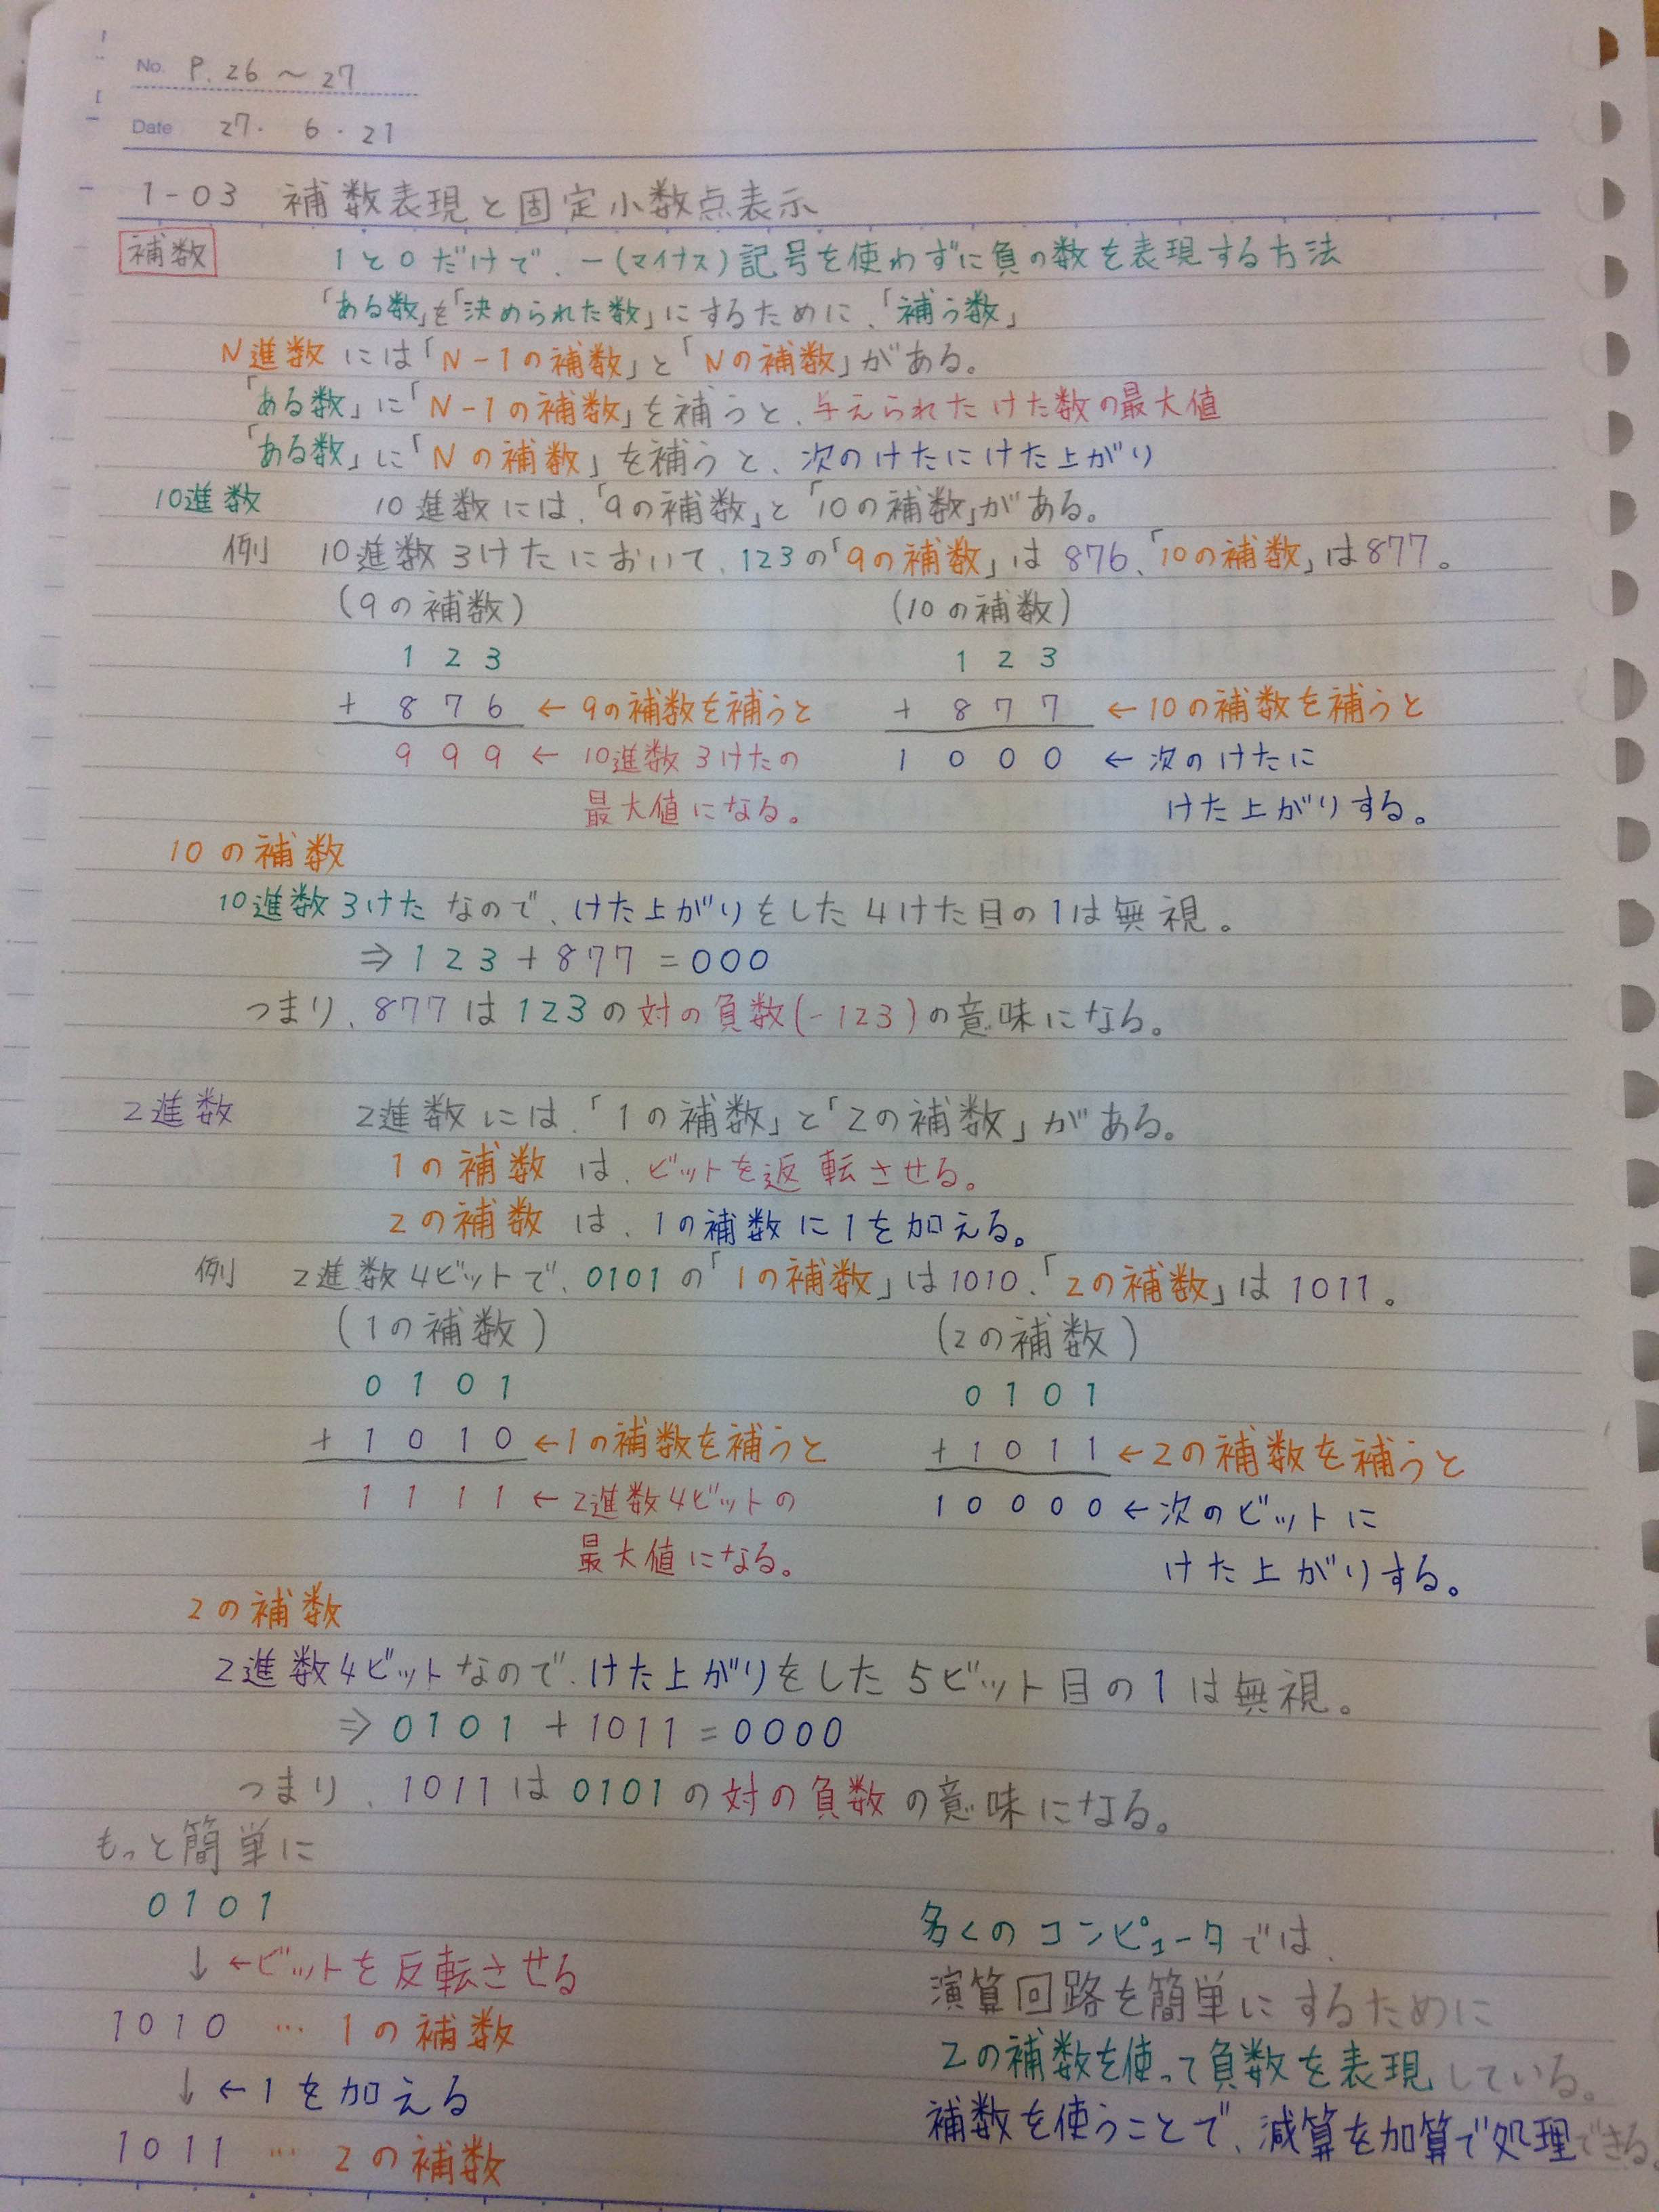 No. P.26〜27
Date 27・6・21
1-03 補数表現と固定小数点表示
補数 1と0だけで、-(マイナス)記号を使わずに負の数を表現する方法
「ある数」を「決められた数」にするために、「補う数」
N進数には「N-1の補数」と「Nの補数」がある。
「ある数」に「N-1の補数」を補うと、与えられたけた数の最大値
「ある数」に「Nの補数」を補うと、次のけたにけた上がり
10進数 10進数には、「9の補数」と「10の補数」がある。
例 10進数3けたにおいて、123の「9の補数」は876、「10の補数」は877。
(9の補数) (10の補数)
1 2 3 1 2 3
+ 8 7 6 ←9の補数を補うと + 8 7 7 ←10の補数を補うと
9 9 9 ← 10進数3けたの 1 0 0 0 ← 次のけたに
最大値になる。 けた上がりする。
10の補数
10進数3けたなので、けた上がりをした4けた目の1は無視。
⇒ 123+877=000
つまり、877は123の対の負数(-123)の意味になる。
2進数 2進数には、「1の補数」と「2の補数」がある。
1の補数は、ビットを返転させる。
2の補数は、1の補数に1を加える。
例 2進数4ビットで、0101の「1の補数」は1010、「2の補数」は1011。
(1の補数) (2の補数)
0 1 0 1 0 1 0 1
+ 1 0 1 0 ←1の補数を補うと + 1 0 1 1 ←2の補数を補うと
1 1 1 1 ←2進数4ビットの 1 0 0 0 0 ←次のビットに
最大値になる。 けた上がりする。
2の補数
2進数4ビットなので、けた上がりをした5ビット目の1は無視。
⇒ 0101+1011=0000
つまり、1011は0101の対の負数の意味になる。
もっと簡単に
0101
↓ ←ビットを反転させる
1010 … 1の補数
↓ ←1を加える
1011 … 2の補数
多くのコンピュータでは、
演算回路を簡単にするために
2の補数を使って負数を表現している。
補数を使うことで、減算を加算で処理できる。